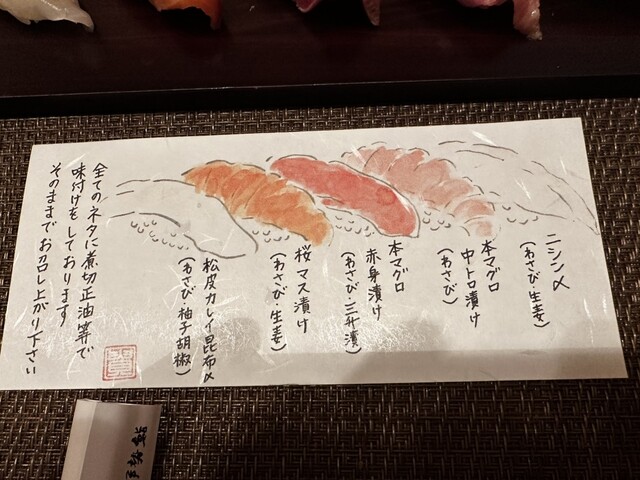 ニシン〆
(わさび・生姜)
本マグロ
中トロ漬け
(わさび)
本マグロ
赤身漬け
(わさび・三升漬)
桜マス漬け
(わさび・生姜)
松皮カレイ昆布〆
(わさび・柚子胡椒)
全てのネタに煮切正油等で
味付けをしております
そのままでお召し上がり下さい